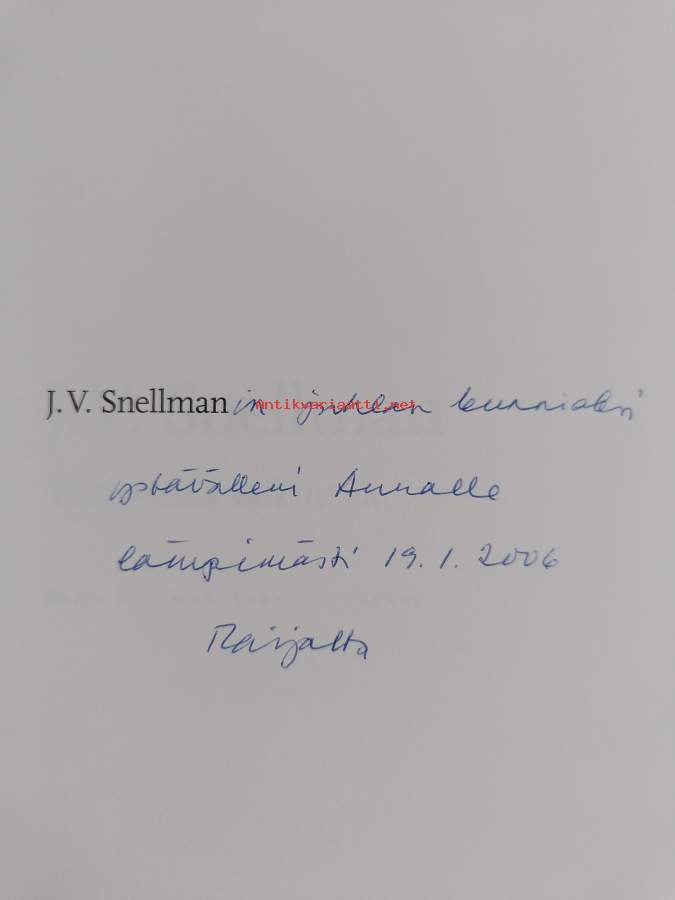 J.V. Snellmanin juhlan kunniaksi
Antikvariaatti.net
ystävälleni Annalle
lämpimästi 19.1.2006
Raijalta